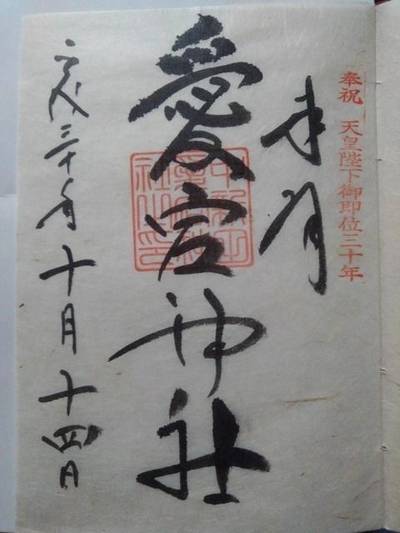 奉祝 天皇陛下御即位三十年
奉拝
愛宕神社
平成三十年十月十四日